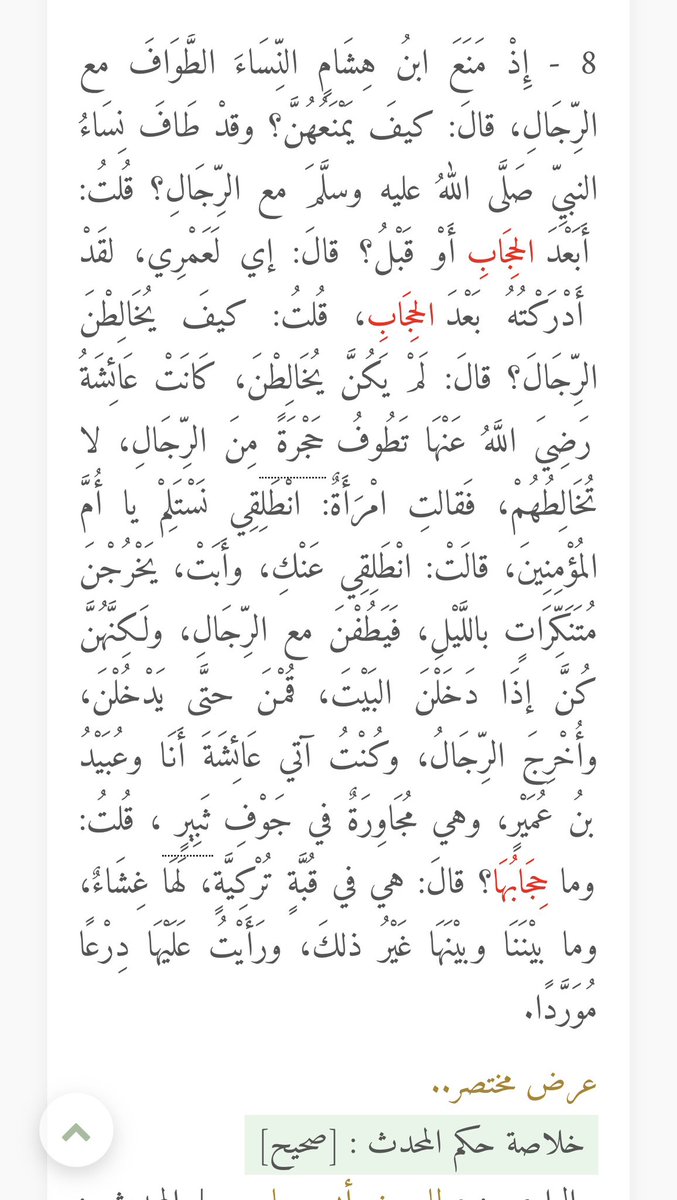 8 - إِذْ مَنَعَ ابنُ هِشَامٍ النِّسَاءَ الطَّوَافَ مع
الرِّجَالِ، قالَ: كيفَ يَمْنَعُهُنَّ؟ وقدْ طَافَ نِسَاءُ
النبيِّ صَلَّى اللهُ عليه وسلَّمَ مع الرِّجَالِ؟ قُلتُ:
أَبَعْدَ الحِجَابِ أَوْ قَبْلُ؟ قالَ: إي لَعَمْرِي، لقَدْ
أَدْرَكْتُهُ بَعْدَ الحِجَابِ، قُلتُ: كيفَ يُخَالِطْنَ
الرِّجَالَ؟ قالَ: لَمْ يَكُنَّ يُخَالِطْنَ، كَانَتْ عَائِشَةُ
رَضِيَ اللَّهُ عَنْهَا تَطُوفُ حَجْرَةً مِنَ الرِّجَالِ، لا
تُخَالِطُهُمْ، فَقالتِ امْرَأَةٌ: انْطَلِقِي نَسْتَلِمْ يا أُمَّ
المُؤْمِنِينَ، قالَتْ: انْطَلِقِي عَنْكِ، وأَبَتْ، يَخْرُجْنَ
مُتَنَكِّرَاتٍ باللَّيْلِ، فَيَطُفْنَ مع الرِّجَالِ، ولَكِنَّهُنَّ
كُنَّ إذَا دَخَلْنَ البَيْتَ، قُمْنَ حتَّى يَدْخُلْنَ،
وأُخْرِجَ الرِّجَالُ، وكُنْتُ آتي عَائِشَةَ أَنَا وعُبَيْدُ
بنُ عُمَيْرٍ، وهي مُجَاوِرَةٌ في جَوْفِ ثَبِيرٍ ، قُلتُ:
وما حِجَابُهَا؟ قالَ: هي في قُبَّةٍ تُرْكِيَّةٍ، لَهَا غِشَاءٌ،
وما بيْنَنَا وبيْنَهَا غَيْرُ ذلكَ، ورَأَيْتُ عَلَيْهَا دِرْعًا
مُوَرَّدًا.
عرض مختصر..
خلاصة حكم المحدث : [صحيح]